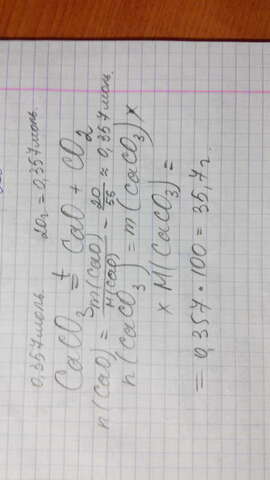 0,357моль 20г = 0,357моль.
CaCO3 =t CaO + CO2
n(CaO) = m(CaO)/M(CaO) = 20/56 ≈ 0,357моль.
n(CaCO3) = m(CaCO3) x
x M(CaCO3) =
= 0,357 · 100 = 35,7г.